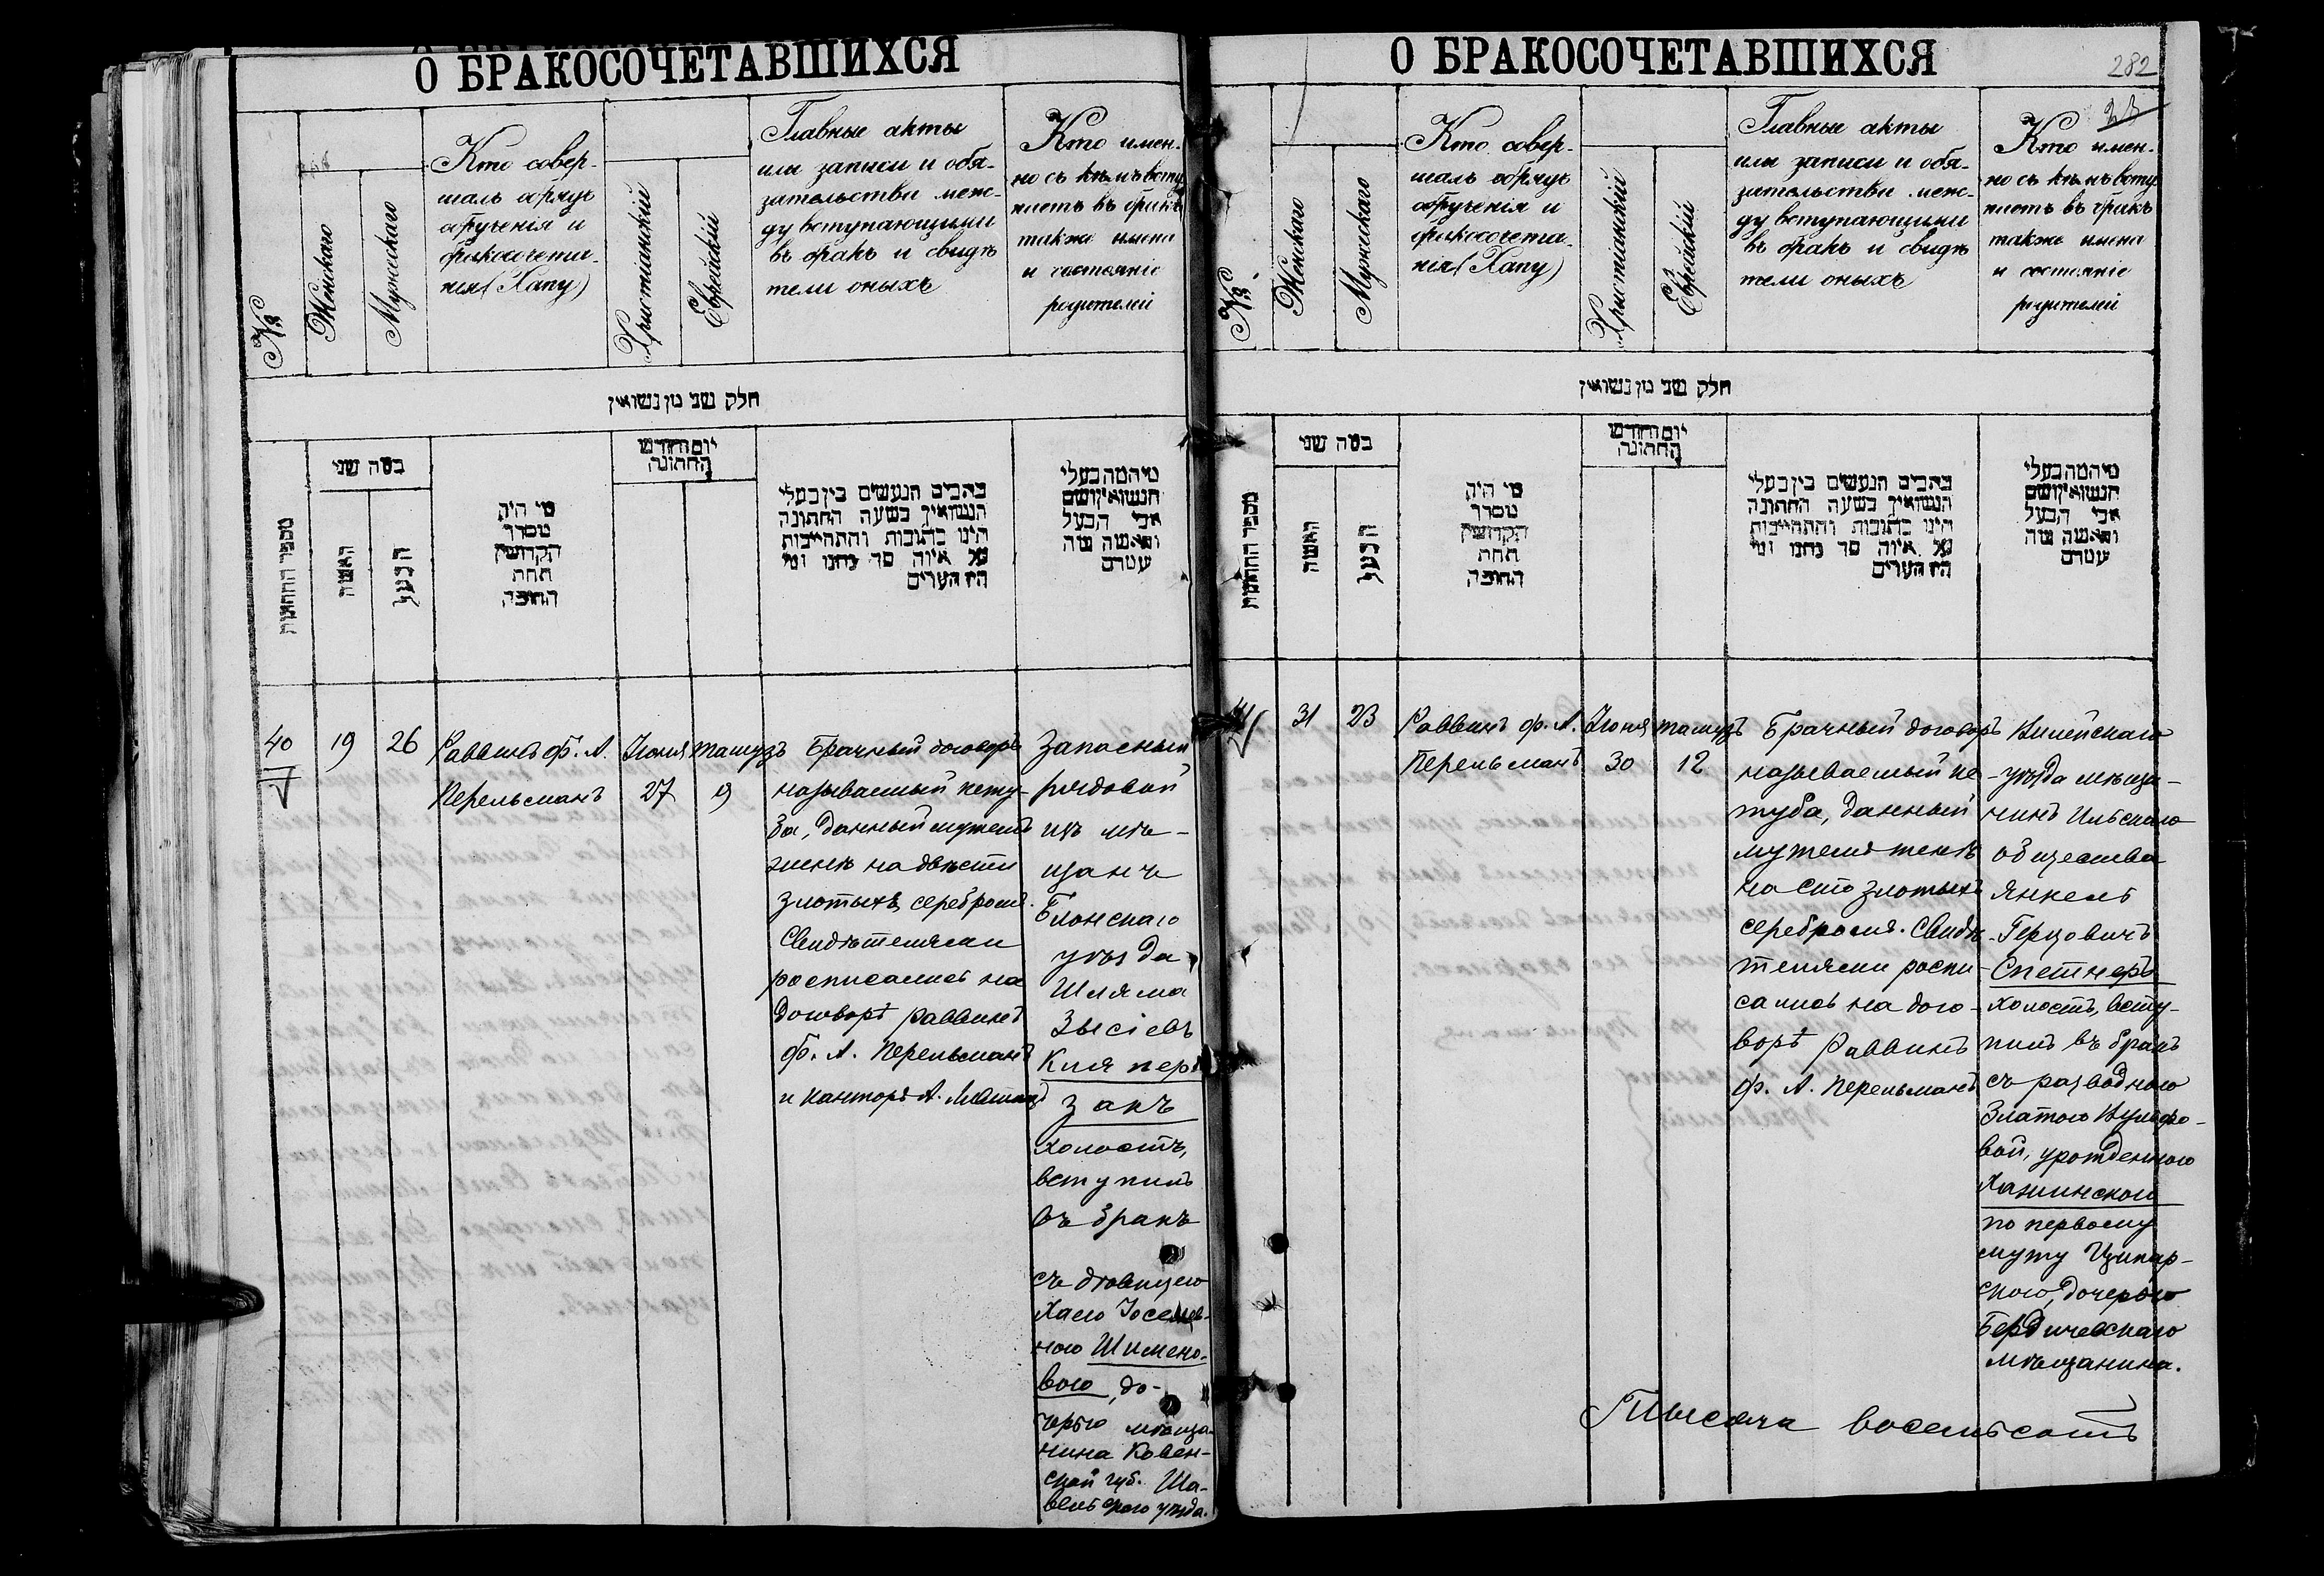 О БРАКОСОЧЕТАВШИХСЯ
№
Женскаго
Мужескаго
Кто совер-
шалъ обрядъ
обрученія и
бракосочета-
нія (Хапу)
Христіанскій
Еврейскій
Главные акты
или записи и обя-
зательства меж-
ду вступающими
въ бракъ и свидѣ
тели оныхъ
Кто имен-
но съ кѣмъ всту
паетъ въ бракъ
также имена
и состояніе
родителей
חלק שני מן נשואין
מספר החתונות
בטה שני
האשה
הבעל
מי היה
מסדר
הקדושין
תחת
החופה
יום וחודש
החתונה
כתבים הנעשים בין בעלי
הנשואין בשעה החתונה
היינו כתובות והתחייבות
על איזה סך נתנו ומי
היו העדים
מיהמה בעלי
הנשואין ושם
אבי הבעל
והאשה ומה
מעמדם
40
19
26
Раввинъ Ф. А.
Перельманъ
Іюня
27
Тамузъ
9
Брачный договоръ
называемый кету-
ба, данный мужемъ
женѣ на двѣсти
злотыхъ серебромъ.
Свидѣтелями
росписались на
договорѣ раввинъ
Ф. А. Перельманъ
и канторъ А.
Запасный
рядовой
изъ мѣ-
щанъ
Блонскаго
уѣзда
Шляма
Зысіевъ
Кляпер
закъ
холостъ,
вступилъ
въ бракъ
съ дѣвицею
Хаею
ною Шимено-
вою, до-
черью мѣща-
нина Ковен-
ской губ. Ша-
вельскаго уѣзда.
О БРАКОСОЧЕТАВШИХСЯ
282
23
№
Женскаго
Мужескаго
Кто совер-
шалъ обрядъ
обрученія и
бракосочета-
нія (Хапу)
Христіанскій
Еврейскій
Главные акты
или записи и обя-
зательства меж-
ду вступающими
въ бракъ и свидѣ
тели оныхъ
Кто имен-
но съ кѣмъ всту
паетъ въ бракъ
также имена
и состояніе
родителей
חלק שני מן נשואין
מספר החתונות
בטה שני
האשה
הבעל
מי היה
מסדר
הקדושין
תחת
החופה
יום וחודש
החתונה
כתבים הנעשים בין בעלי
הנשואין בשעה החתונה
היינו כתובות והתחייבות
על איזה סך נתנו ומי
היו העדים
מיהמה בעלי
הנשואין ושם
אבי הבעל
והאשה ומה
מעמדם
41
31
23
Раввинъ Ф. А.
Перельманъ
Іюня
30
Тамузъ
12
Брачный договоръ
называемый ке-
туба, данный
мужемъ женѣ
на сто злотыхъ
серебромъ. Свидѣ-
телями роспи-
сались на дого-
ворѣ раввинъ
Ф. А. Перельманъ
Вилейскаго
уѣзда мѣща-
нинъ Ильскаго
общества
Янкель
Герцовичъ
Спетнеръ
холостъ, всту-
пилъ въ бракъ
съ разводною
Златою Вульфо-
вой, урожденною
Хажинской
по первому
мужу Ципар-
скою, дочерью
Бердичевскаго
мѣщанина.
Тысяча восемьсотъ